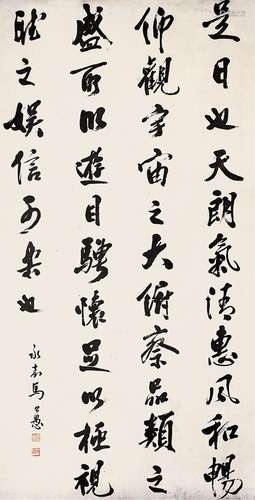 是日也天朗氣清惠風和暢
仰觀宇宙之大俯察品類之
盛所以遊目騁懷足以極視
聽之娛信可樂也
永嘉馬公愚